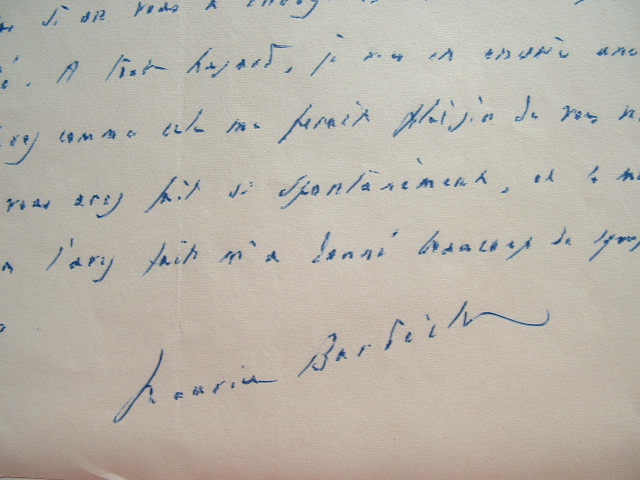 si on vous a
. A tout hasard, je vous en envoie une
comme cela me ferait plaisir de vous
vous avez fait si spontanément, et la
l'avez fait m'a donné beaucoup de
Maurice Bardèche